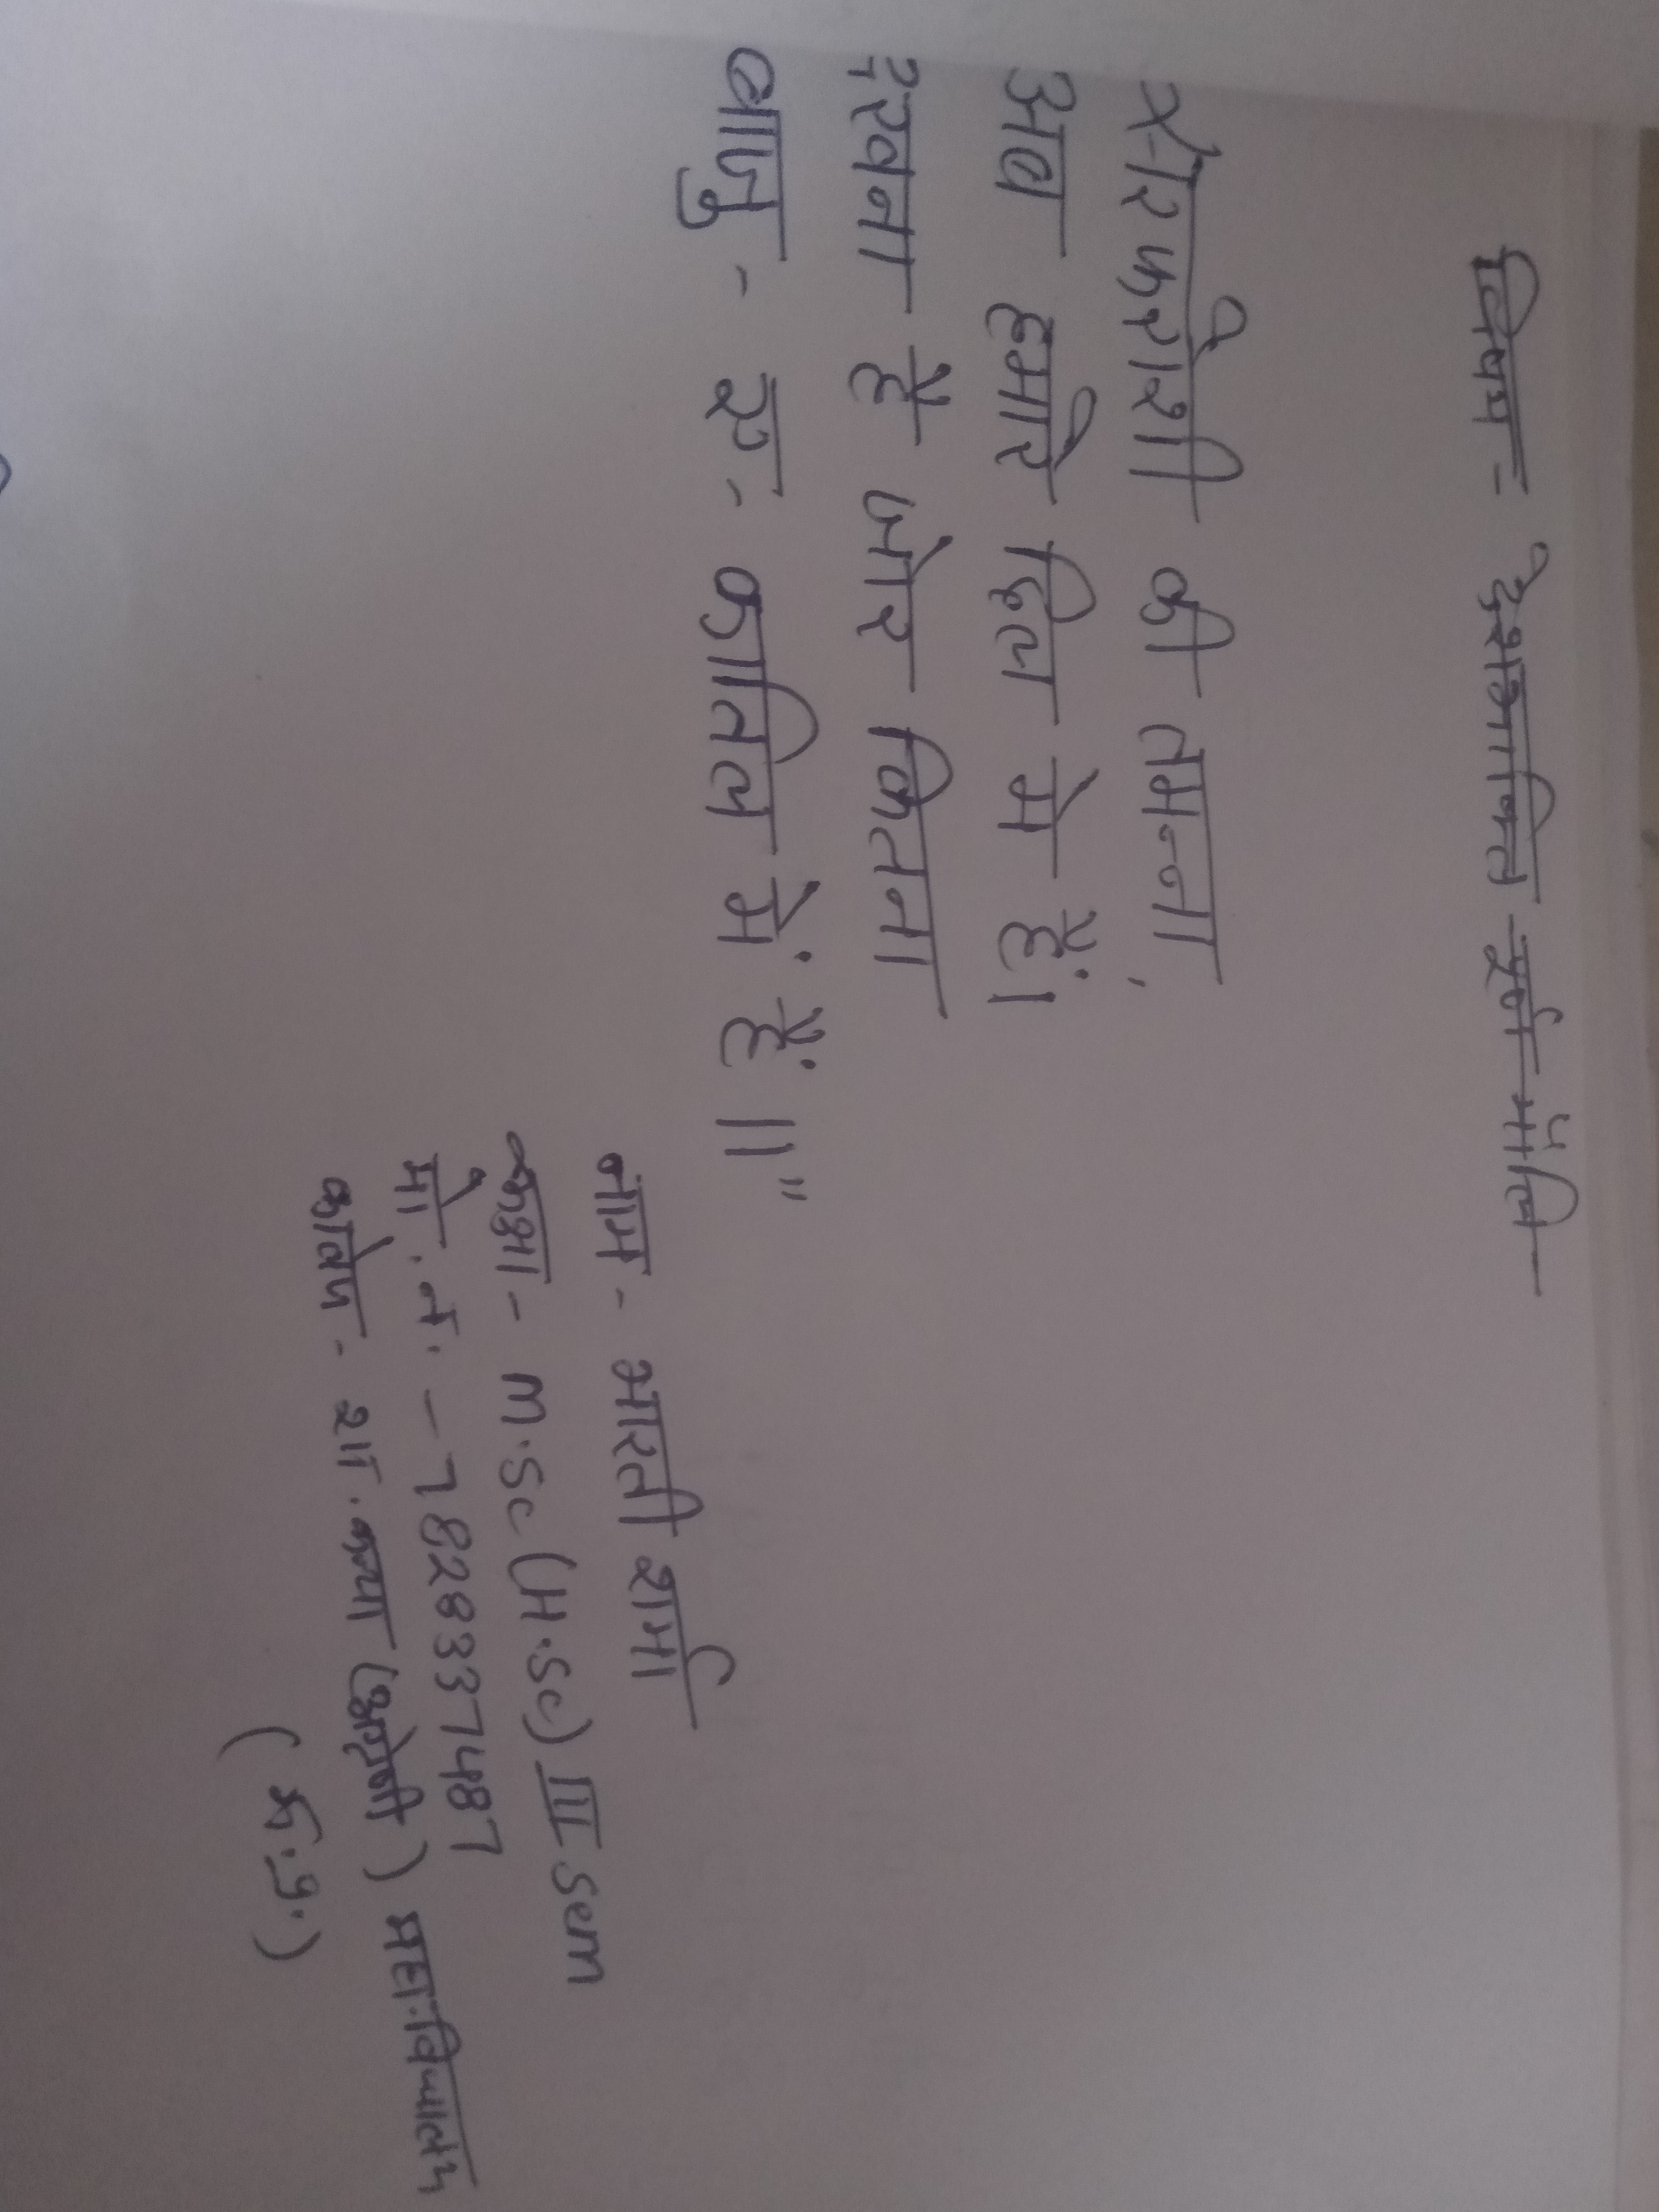 विषय = देशभक्ति पूर्ण भाँति
सरफरोशी की तमन्ना,
अब हमारे दिल मे हैं।
देखना है जोर कितना
बाजु - ए - कातिल में हैं ॥"
नाम - भारती शर्मा
कक्षा - M.Sc (H.Sc) III sem
मो. न. - 7828337487
कालेज - शा. कन्या महाविद्यालय
(म.प्र.)